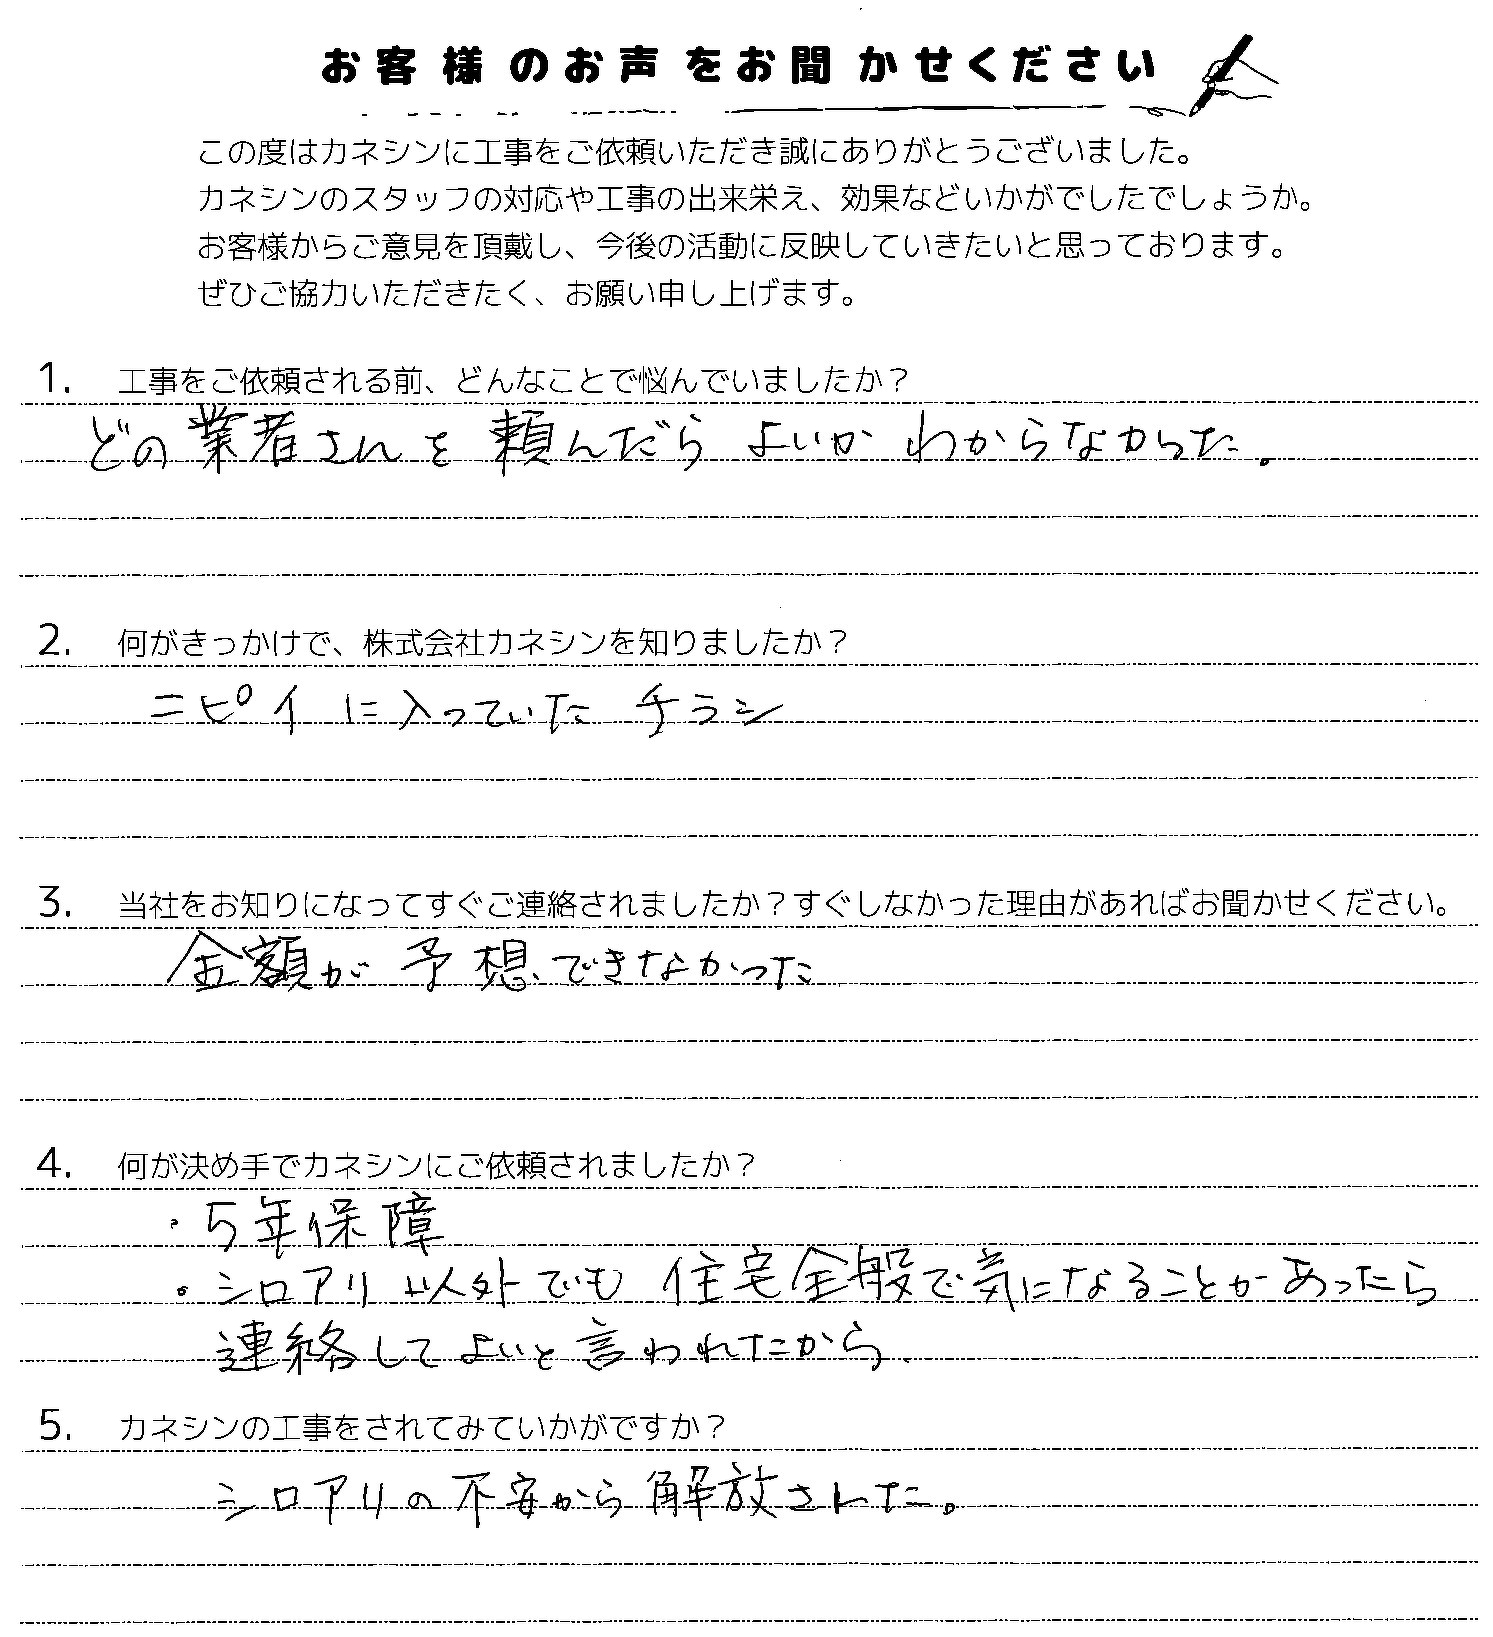 お客様のお声をお聞かせください
この度はカネシンに工事をご依頼いただき誠にありがとうございました。
カネシンのスタッフの対応や工事の出来栄え、効果などいかがでしたでしょうか。
お客様からご意見を頂戴し、今後の活動に反映していきたいと思っております。
ぜひご協力いただきたく、お願い申し上げます。
1. 工事をご依頼される前、どんなことで悩んでいましたか？
どの業者さんを頼んだら よいか わからなかった。
2. 何がきっかけで、株式会社カネシンを知りましたか？
ニピイに入っていた チラシ
3. 当社をお知りになってすぐご連絡されましたか？すぐしなかった理由があればお聞かせください。
金額が 予想できなかった
4. 何が決め手でカネシンにご依頼されましたか？
・5年保障
・シロアリ以外でも 住宅全般で気になることがあったら
連絡してよいと言われたから
5. カネシンの工事をされてみていかがですか？
シロアリの不安から解放された。